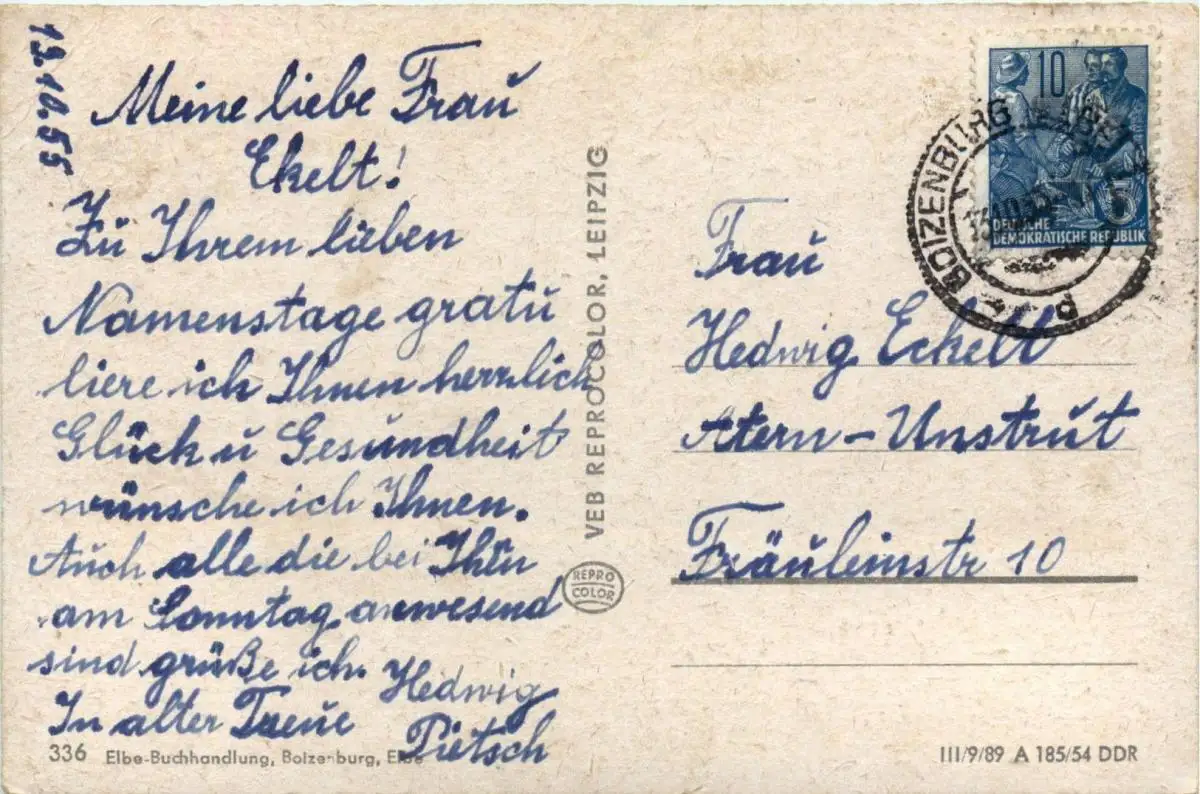 13.10.55
Meine liebe Frau
Ekelt!
Zu Ihrem lieben
Namenstage gratu
liere ich Ihnen herzlich
Glück u Gesundheit
wünsche ich Ihnen.
Auch alle die bei Ihnen
am Sonntag anwesend
sind grüße ich. Hedwig
In alter Treue Pietsch
336 Elbe-Buchhandlung, Boizenburg, Elbe
VEB REPROCOLOR, LEIPZIG
REPRO
COLOR
10
DEUTSCHE
DEMOKRATISCHE REPUBLIK
BOIZENBURG
d
Frau
Hedwig Eckelt
Atern-Unstrut
Fräuleinstr 10
III/9/89 A 185/54 DDR